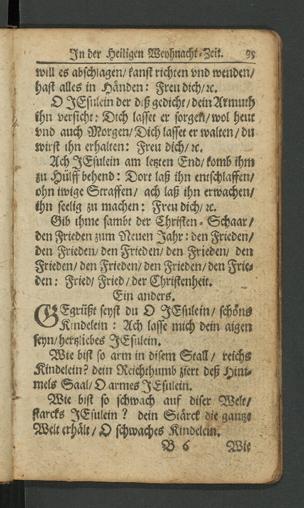 In der Heiligen Weyhnacht-Zeit. 95
will es abschlagen/ kanst richten vnd wenden/
hast alles in Händen: Freu dich/ ꝛc.
O JEsulein der diß gedicht/ dein Armuth
ihn versicht: Dich lasset er sorgen/ wol heut
vnd auch Morgen/ Dich lasset er walten/ du
wirst ihn erhalten: Freu dich/ ꝛc.
Ach JEsulein am letzten End/ komb ihm
zu Hülff behend: Dort laß ihn entschlaffen/
ohn ewige Straffen/ ach laß ihn erwachen/
ihn seelig zu machen: Freu dich/ ꝛc.
Gib ihme sambt der Christen-Schaar/
den Frieden zum Neuen Jahr: den Frieden/
den Frieden/ den Frieden/ den Frieden/ den
Frieden/ den Frieden/ den Frieden/ den Frie-
den: Fried/ Fried/ der Christenheit.
Ein anders.
GEgrüßt seyst du O JEsulein/ schöns
Kindelein: Ach lasse mich dein aigen
seyn/ hertzliebes JEsulein.
Wie bist so arm in disem Stall/ reichs
Kindelein? dein Reichthumb ziert deß Him-
mels Saal/ O armes JEsulein.
Wie bist so schwach auf diser Welt/
starcks JEsulein? dein Stärck die gantze
Welt erhält/ O schwaches Kindelein.
B 6 Wie